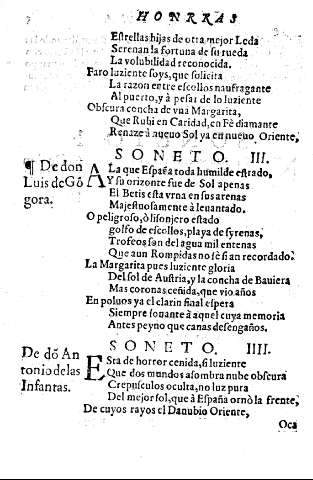 HONRRAS
Estrellas hijas de otra mejor Leda
Serenan la fortuna de su rueda
La volubilidad reconocida.
Faro luziente soys, que solicita
La razon entre escollos naufragante
Al puerto, y à pesar de lo luziente
Obscura concha de vna Margarita,
Que Rubi en Caridad, en Fè diamante
Renaze à nueuo Sol ya en nueuo Oriente,
SONETO. III.
¶ De don Luis de Gõgora.
A La que España toda humilde estrado,
Y su orizonte fue de Sol apenas
El Betis esta vrna en sus arenas
Majestuosamente à leuantado.
O peligroso, ò lisonjero estado
golfo de escollos, playa de syrenas,
Trofeos san del agua mil entenas
Que aun Rompidas no sè si an recordado.
La Margarita pues luziente gloria
Del sol de Austria, y la concha de Bauiera
Mas coronas ceñida, que vio años
En poluos ya el clarin final espera
Siempre sonante à aquel cuya memoria
Antes peyno que canas desengaños.
SONETO. IIII.
De dõ Antonio de las Infantas.
Esta de horror ceñida, si luziente
Que dos mundos asombra nube obscura
Crepusculos oculta, no luz pura
Del mejor sol, que à España ornò la frente,
De cuyos rayos el Danubio Oriente,
Oca